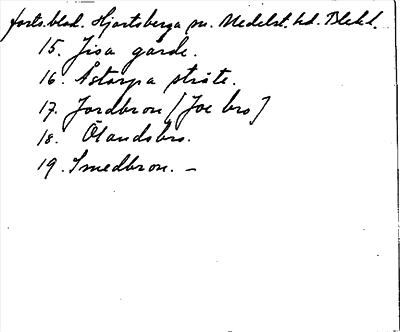 forts.blad. Hjortsberga sn. Medelst. hd. Blekd.
15. Jisa gärde.
16. Åstorpa sträte.
17. Jordbron [Joe bro]
18. Ölandsbro.
19. Smedbron. –